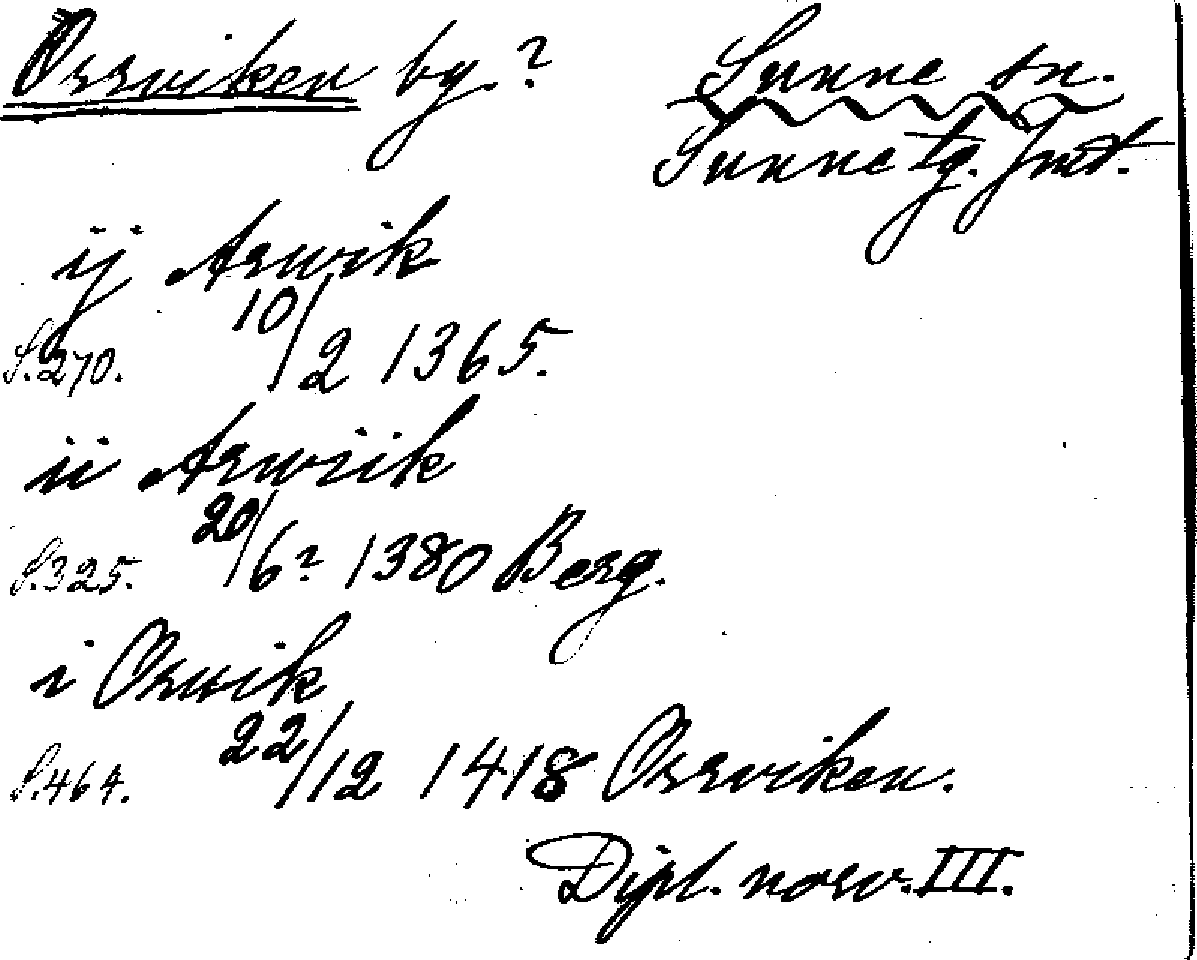 Orrviken by? Sunne sn.
Sunne tg. Jmt.
ij Arwik
S. 270. 10/2 1365.
ii Arwiik
S. 325. 20/6? 1380 Berg.
i Orwik
S. 464. 22/12 1418 Orrviken.
Dipl. norv. III.